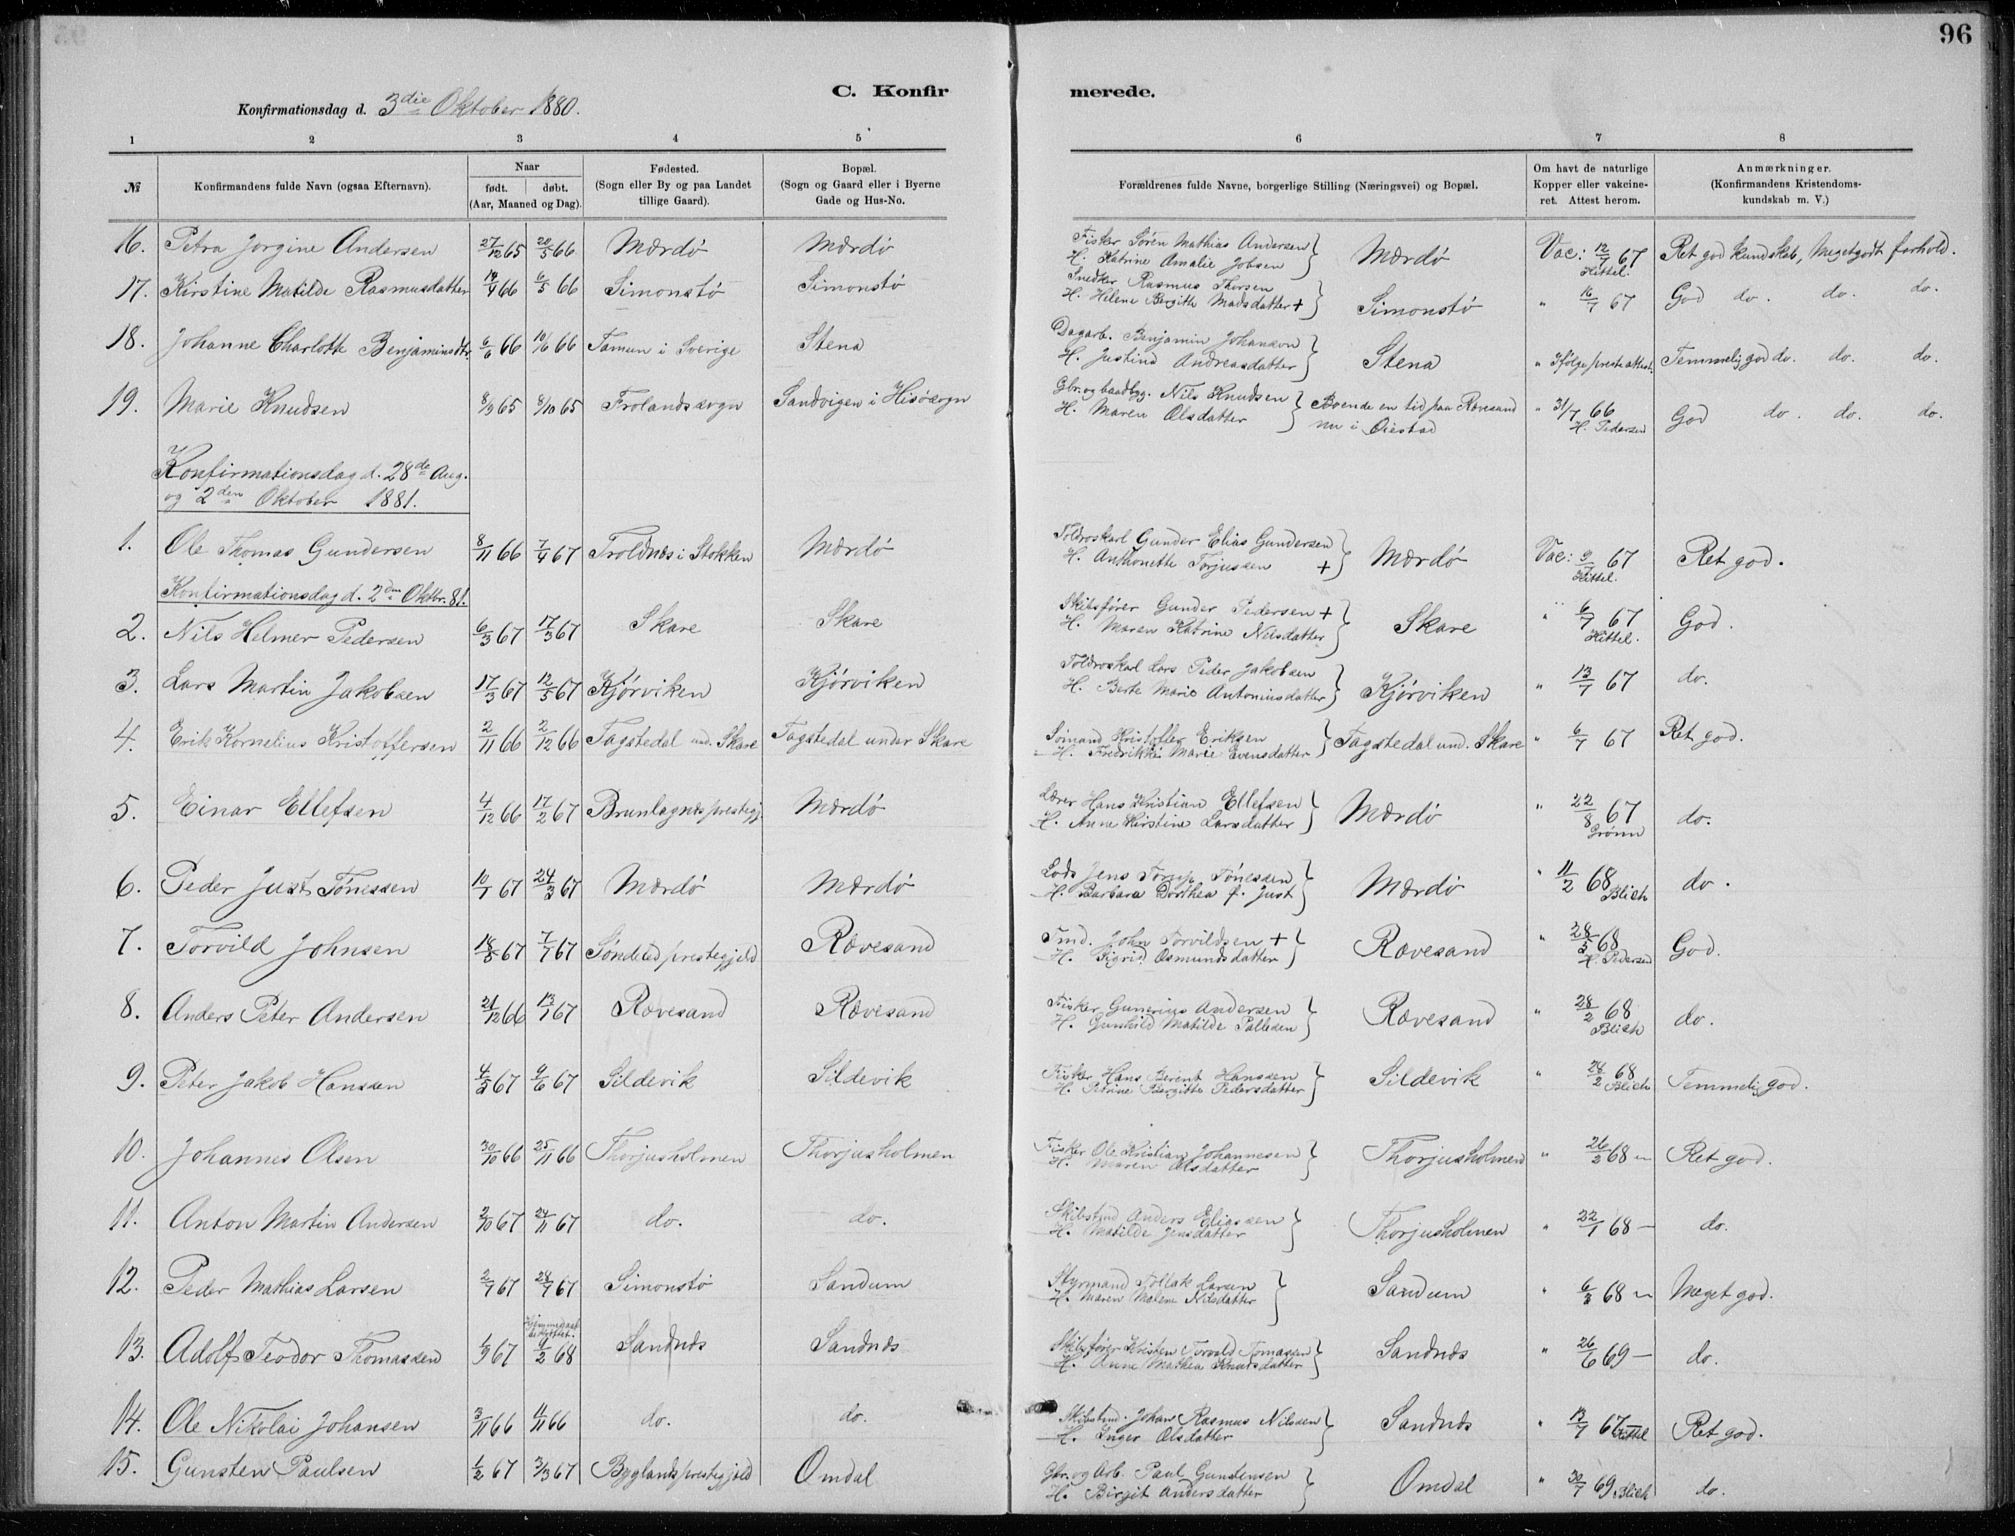 96
C. Konfirmerede.
Konfirmationsdag d. 3die Oktober 1880.
1 2 3 4 5 6 7 8
№ Konfirmandens fulde Navn (ogsaa Efternavn). Naar født. døbt. (Aar, Maaned og Dag). Fødested. (Sogn eller By og paa Landet tillige Gaard). Bopæl. (Sogn og Gaard eller i Byerne Gade og Hus-No. Forældrenes fulde Navne, borgerlige Stilling (Næringsvei) og Bopæl. Om havt de naturlige Kopper eller vakcineret. Attest herom. Anmærkninger. (Konfirmandens Kristendomskundskab m. V.)
16. Petra Jorgine Andersen 27/12 65 20/5 66 Mærdö Mærdö Fisker Sören Mathias Andersen H. Katrine Amalie Jobsen } Mærdö Vac: 12/7 67 Kittel. Ret god kundskab, Meget godt forhold.
17. Kirstine Matilde Rasmusdatter 14/4 66 6/5 66 Simonstö Simonstö Snedker Rasmus Thorsen H. Helene Bergitte Madsdatter + } Simonstö " 16/7 67 God do. do. do.
18. Johanne Charlotte Benjaminsdtr. 6/6 66 10/6 66 Tamun i Sverige Stena Dagarb. Benjamin Johanson H. Justina Andreasdatter } Stena " Ifølge presteattest. Temmelig god do. do. do.
19. Marie Knudsen 8/9 65 8/10 65 Frolands sogn Sandvigen i Hisösogn Gbr. og baadbyg. Nils Knudsen H. Maren Olsdatter } Boende en tid paa Rævesand nu i Öiestad " 31/7 66 H. Pedersen God do. do. do.
Konfirmationsdag d. 28de Aug.
og 2den Oktober 1881.
1. Ole Thomas Gundersen 8/11 66 7/4 67 Troldnæs i Stokken Mærdö Toldroskarl Gunder Elias Gundersen H. Anthonette Torjussen + } Mærdö Vac: 9/7 67 Kittel. Ret god.
Konfirmationsdag d. 2den Oktbr. 81.
2. Nils Helmer Pedersen 6/3 67 17/3 67 Skare Skare Skibsfører Gunder Pedersen + H. Maren Katrine Nilsdatter } Skare " 6/7 67 Kittel. God.
3. Lars Martin Jakobsen 17/3 67 12/5 67 Kjörviken Kjörviken Toldroskarl Lars Peder Jakobsen H. Berte Marie Antoniusdatter } Kjörviken " 13/7 67 do.
4. Erik Kornelius Kristoffersen 2/11 66 2/12 66 Fagstedal und. Skare Fagstedal under Skare Sömand Kristoffer Eriksen H. Fredrikke Marie Evensdatter } Fagstedal und. Skare " 6/7 67 Ret god.
5. Einar Ellefsen 4/12 66 17/2 67 Brunlagnæs prestegj. Mærdö Lærer Hans Kristian Ellefsen H. Anne Kirstine Larsdatter } Mærdö " 22/8 67 Grönn do.
6. Peder Just Tönessen 10/1 67 24/3 67 Mærdö Mærdö Lods Jens Torup Tönessen H. Barbara Dorthea f. Just } Mærdö " 11/2 68 Blich do.
7. Torvild Johnsen 67 7/7 67 Söndeled prestegjeld Rævesand Tmd. John Torvildsen + H. Sigrid Osmundsdatter } Rævesand " 28/5 68 H. Pedersen God.
8. Anders Peter Andersen 21/12 66 13/1 67 Rævesand Rævesand Fisker Gunerius Andersen H. Gunhild Matilde Pallesen } Rævesand " 28/2 68 Blich do.
9. Peter Jakob Hanssen 4/3 67 9/6 67 Sildevik Sildevik Fisker Hans Berent Hanssen H. Petrine Bergitte Pedersdatter } Sildevik " 28/2 68 Blich Temmelig god.
10. Johannes Olsen 30/10 66 25/11 66 Thorjusholmen Thorjusholmen Fisker Ole Kristian Johannesen H. Maren Olsdatter } Thorjusholmen " 26/2 68 " Ret god.
11. Anton Martin Andersen 2/10 67 24/11 67 do. do. Skibstmd Anders Eliassen H. Matilde Jensdatter } Thorjusholmen " 22/1 68 — do.
12. Peder Mathias Larsen 2/7 67 28/7 67 Simonstö Sandum Styrmand Tollak Larsen H. Maren Malene Nilsdatter } Sandum " 6/3 68 " Meget god.
13. Adolf Teodor Thomassen 1/9 67 9/2 68 Sandnæs Sandnæs Skibsfører Kristen Torvald Tomassen H. Anne Mathea Knudsdatter } Sandnæs " 26/6 69 — do.
14. Ole Nikolai Johansen 3/11 66 11/11 66 do. do. Skibstmd. Johan Rasmus Nilssen H. Inger Olsdatter } Sandnæs " 13/7 67 Kittel Ret god.
15. Gunsten Paulsen 1/2 67 3/3 67 Byglands prestegjeld Omdal Gbr. og Arb. Paul Gunstensen H. Birgit Andersdatter } Omdal " 30/7 69 Blich do.